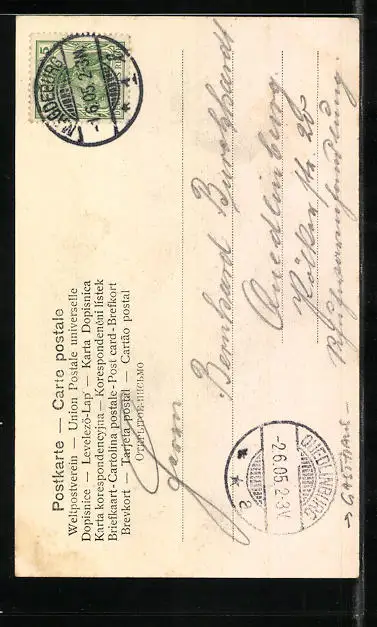 Postkarte — Carte postale
Weltpostverein — Union Postale universelle
Dopisnice — Levelező-Lap — Karta Dopisnica
Karta korespondencyjna — Korespondenční lístek
Briefkaart-Cartolina postale-Post card-Brefkort
Brevkort — Tarjeta postal — Cartão postal
Открытое письмо
5
MAGDEBURG
Herrn
Bernhard Burckhardt
Quedlinburg
QUEDLINBURG
-2.6.05.2-3V
* *
a